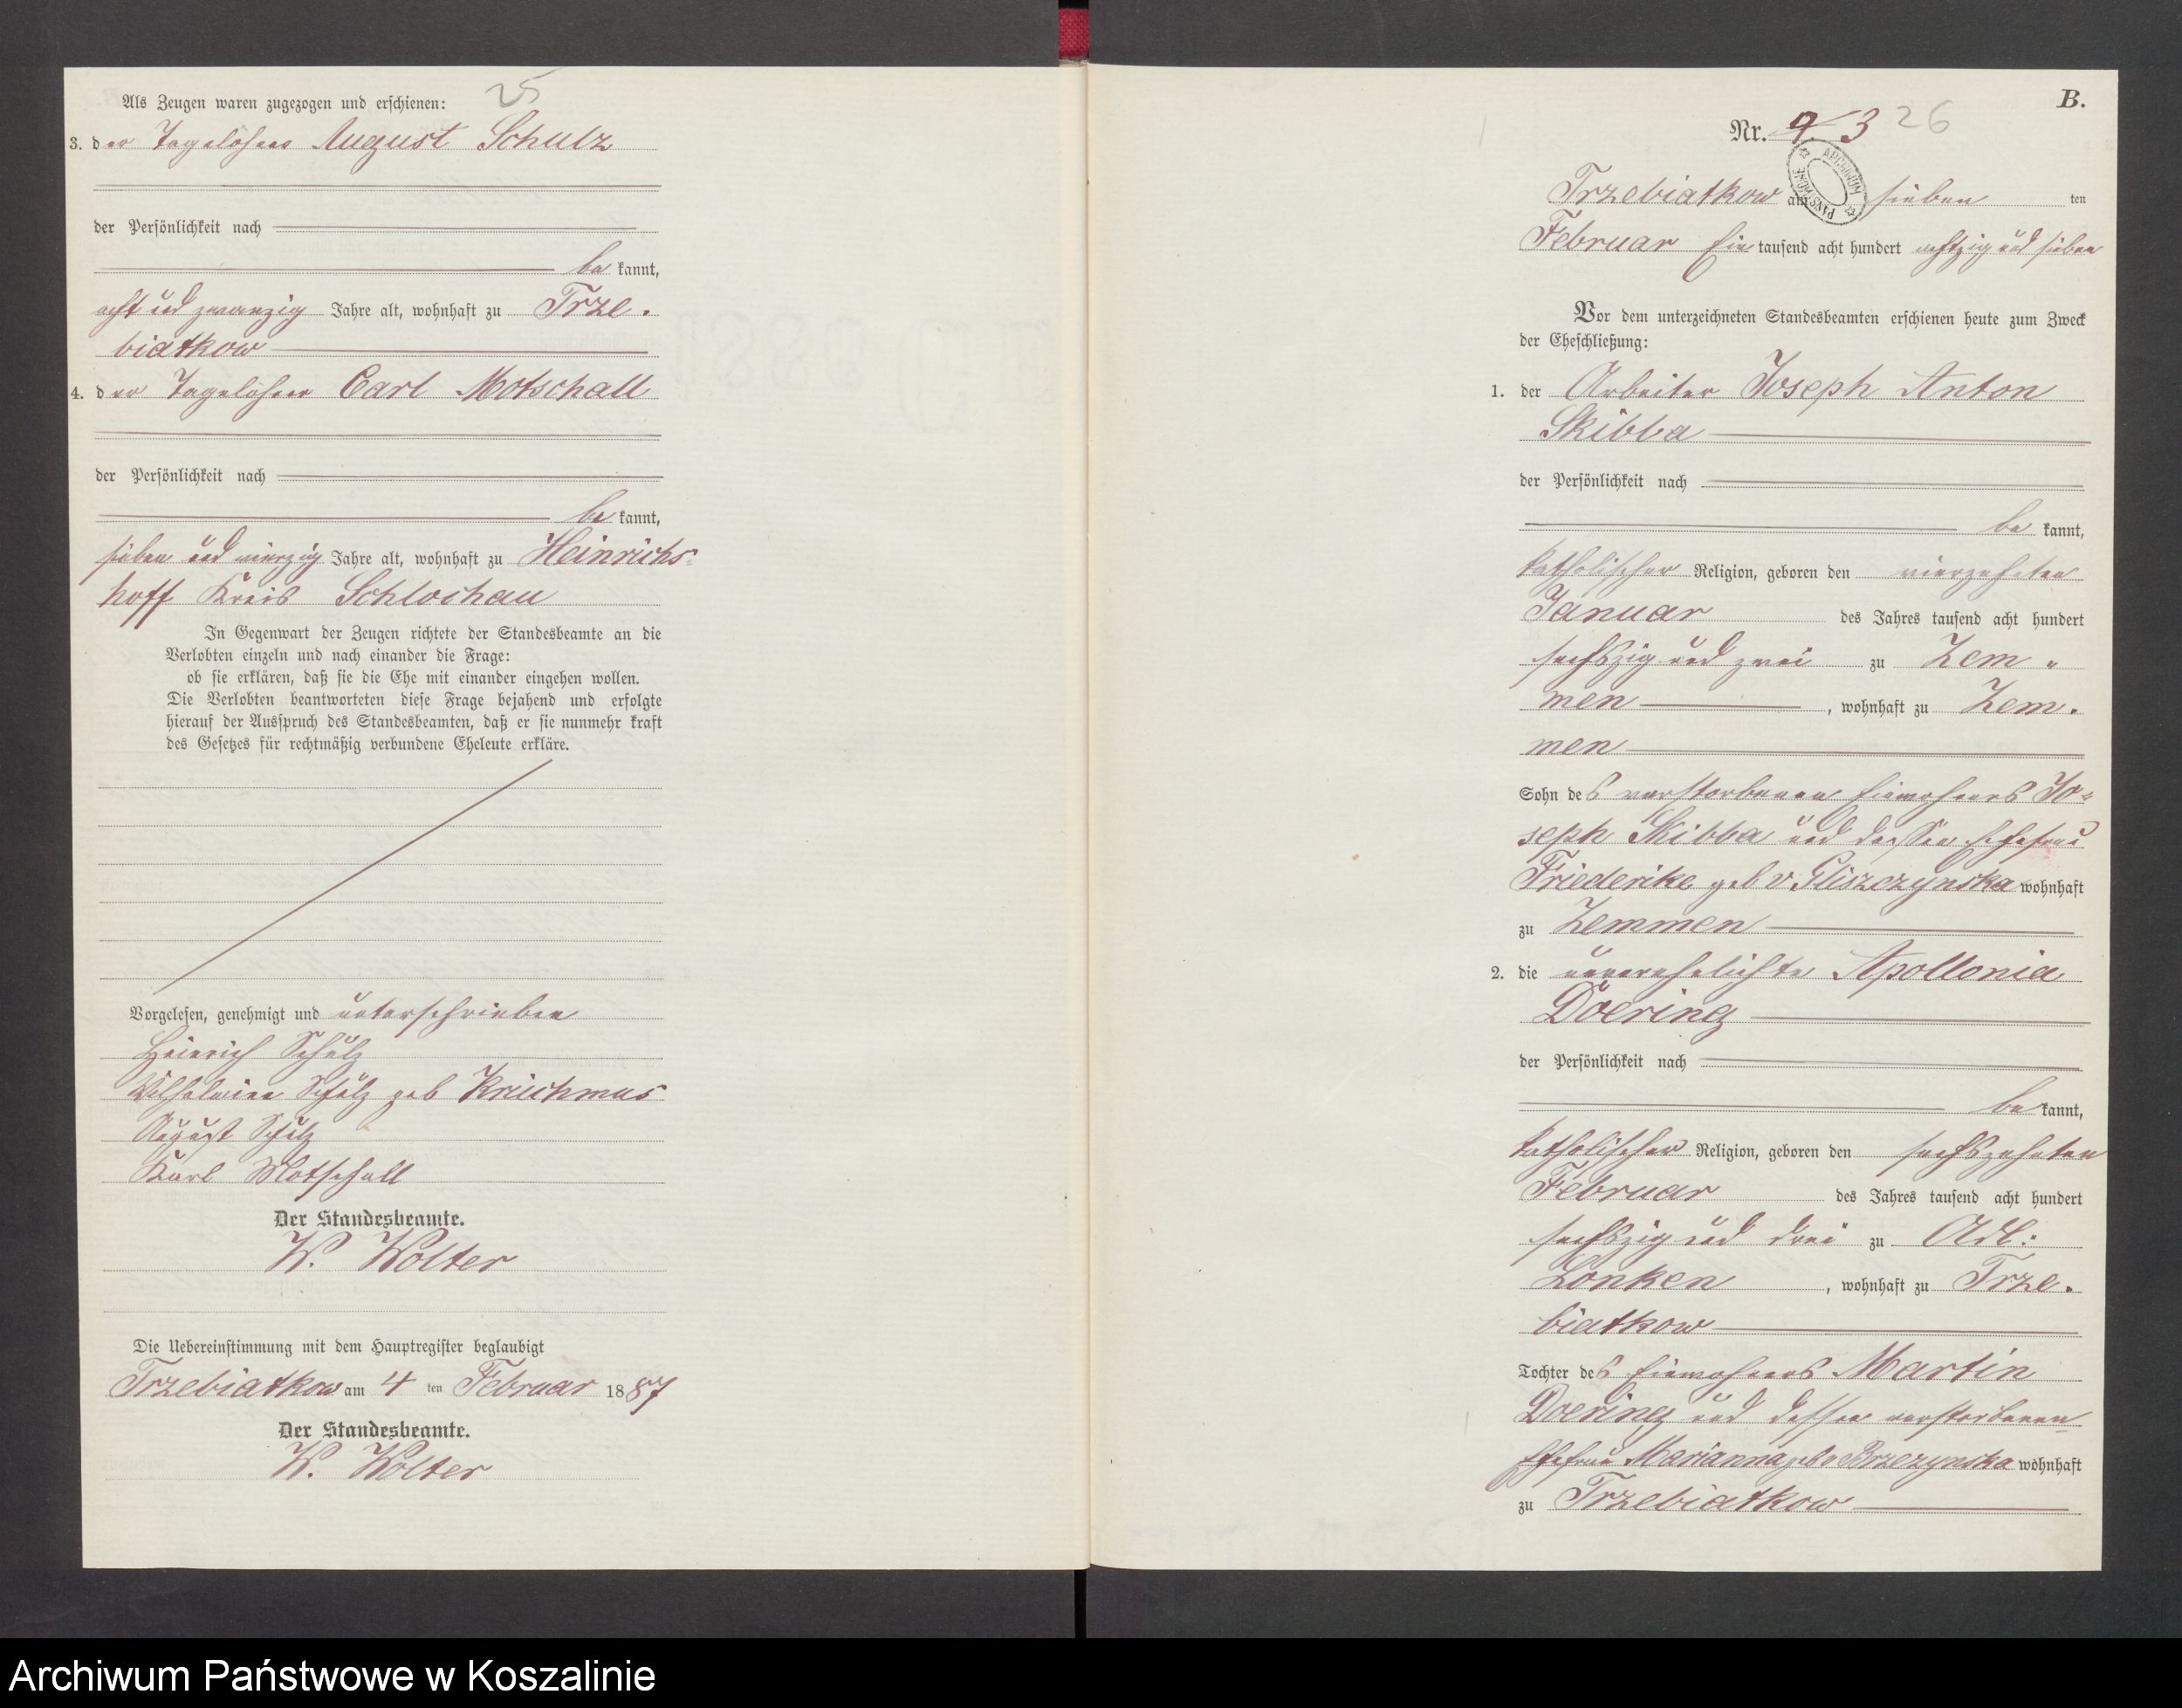 25
Als Zeugen waren zugezogen und erschienen:
3. der Tagelöhner August Schulz
der Persönlichkeit nach
be kannt,
acht und zwanzig Jahre alt, wohnhaft zu Trze-
biatkow
4. der Tagelöhner Carl Motschall
der Persönlichkeit nach
be kannt,
sieben und vierzig Jahre alt, wohnhaft zu Heinrichs-
hoff Kreis Schlochau
In Gegenwart der Zeugen richtete der Standesbeamte an die
Verlobten einzeln und nach einander die Frage:
ob sie erklären, daß sie die Ehe mit einander eingehen wollen.
Die Verlobten beantworteten diese Frage bejahend und erfolgte
hierauf der Ausspruch des Standesbeamten, daß er sie nunmehr kraft
des Gesetzes für rechtmäßig verbundene Eheleute erkläre.
Vorgelesen, genehmigt und unterschrieben
Heinrich Schulz
Wilhelmine Schulz geb
August Schulz
Karl Motschall
Der Standesbeamte.
W. Wolter
Die Uebereinstimmung mit dem Hauptregister beglaubigt
Trzebiatkow am 4 ten Februar 1887
Der Standesbeamte.
W. Wolter
B.
Nr. 3 26
ARCHIWUM PAŃSTWOWE
Trzebiatkow am sieben ten
Februar Ein tausend acht hundert achtzig und sieben
Vor dem unterzeichneten Standesbeamten erschienen heute zum Zweck
der Eheschließung:
1. der Arbeiter Joseph Anton
Skibba
der Persönlichkeit nach
be kannt,
katholischer Religion, geboren den vierzehnten
Januar des Jahres tausend acht hundert
sechszig und zwei zu Zem-
men, wohnhaft zu Zem-
men
Sohn des verstorbenen Einwohners Jo-
seph Skibba und dessen Ehefrau
Friederike geb v. Gliszczynska wohnhaft
zu Zemmen
2. die unverehelichte Apollonia
Doering
der Persönlichkeit nach
be kannt,
katholischer Religion, geboren den sechszehnten
Februar des Jahres tausend acht hundert
sechszig und drei zu Adl:
Lonken, wohnhaft zu Trze-
biatkow
Tochter des Einwohners Martin
Doering und dessen verstorbenen
Ehefrau Marianna geb v Brzezynska wohnhaft
zu Trzebiatkow
Archiwum Państwowe w Koszalinie